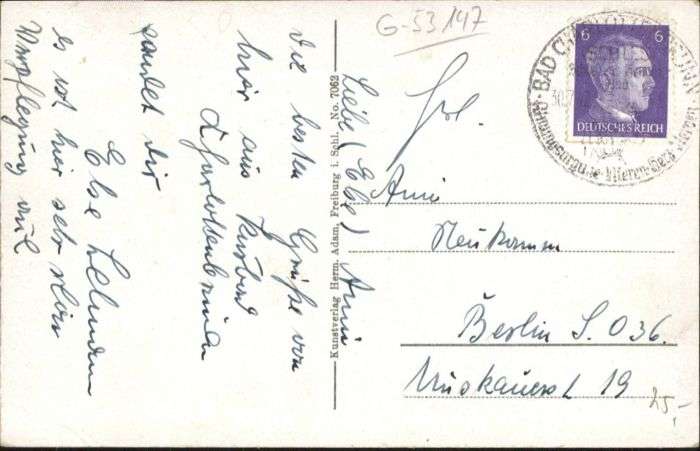 G-53147
Liebe (Else) Anni
die besten Grüße von
hier aus Kurbad
Charlottenbrunn
sendet dir
Else Lehmann
es ist hier sehr schön
Verpflegung gut
Kunstverlag Herm. Adam, Freiburg i. Schl. No. 7062
6 6
DEUTSCHES REICH
BAD CHARLOTTENBRUNN
Frl.
Anni
Neukamm
Berlin S.O 36.
Muskauerst 19
25,-